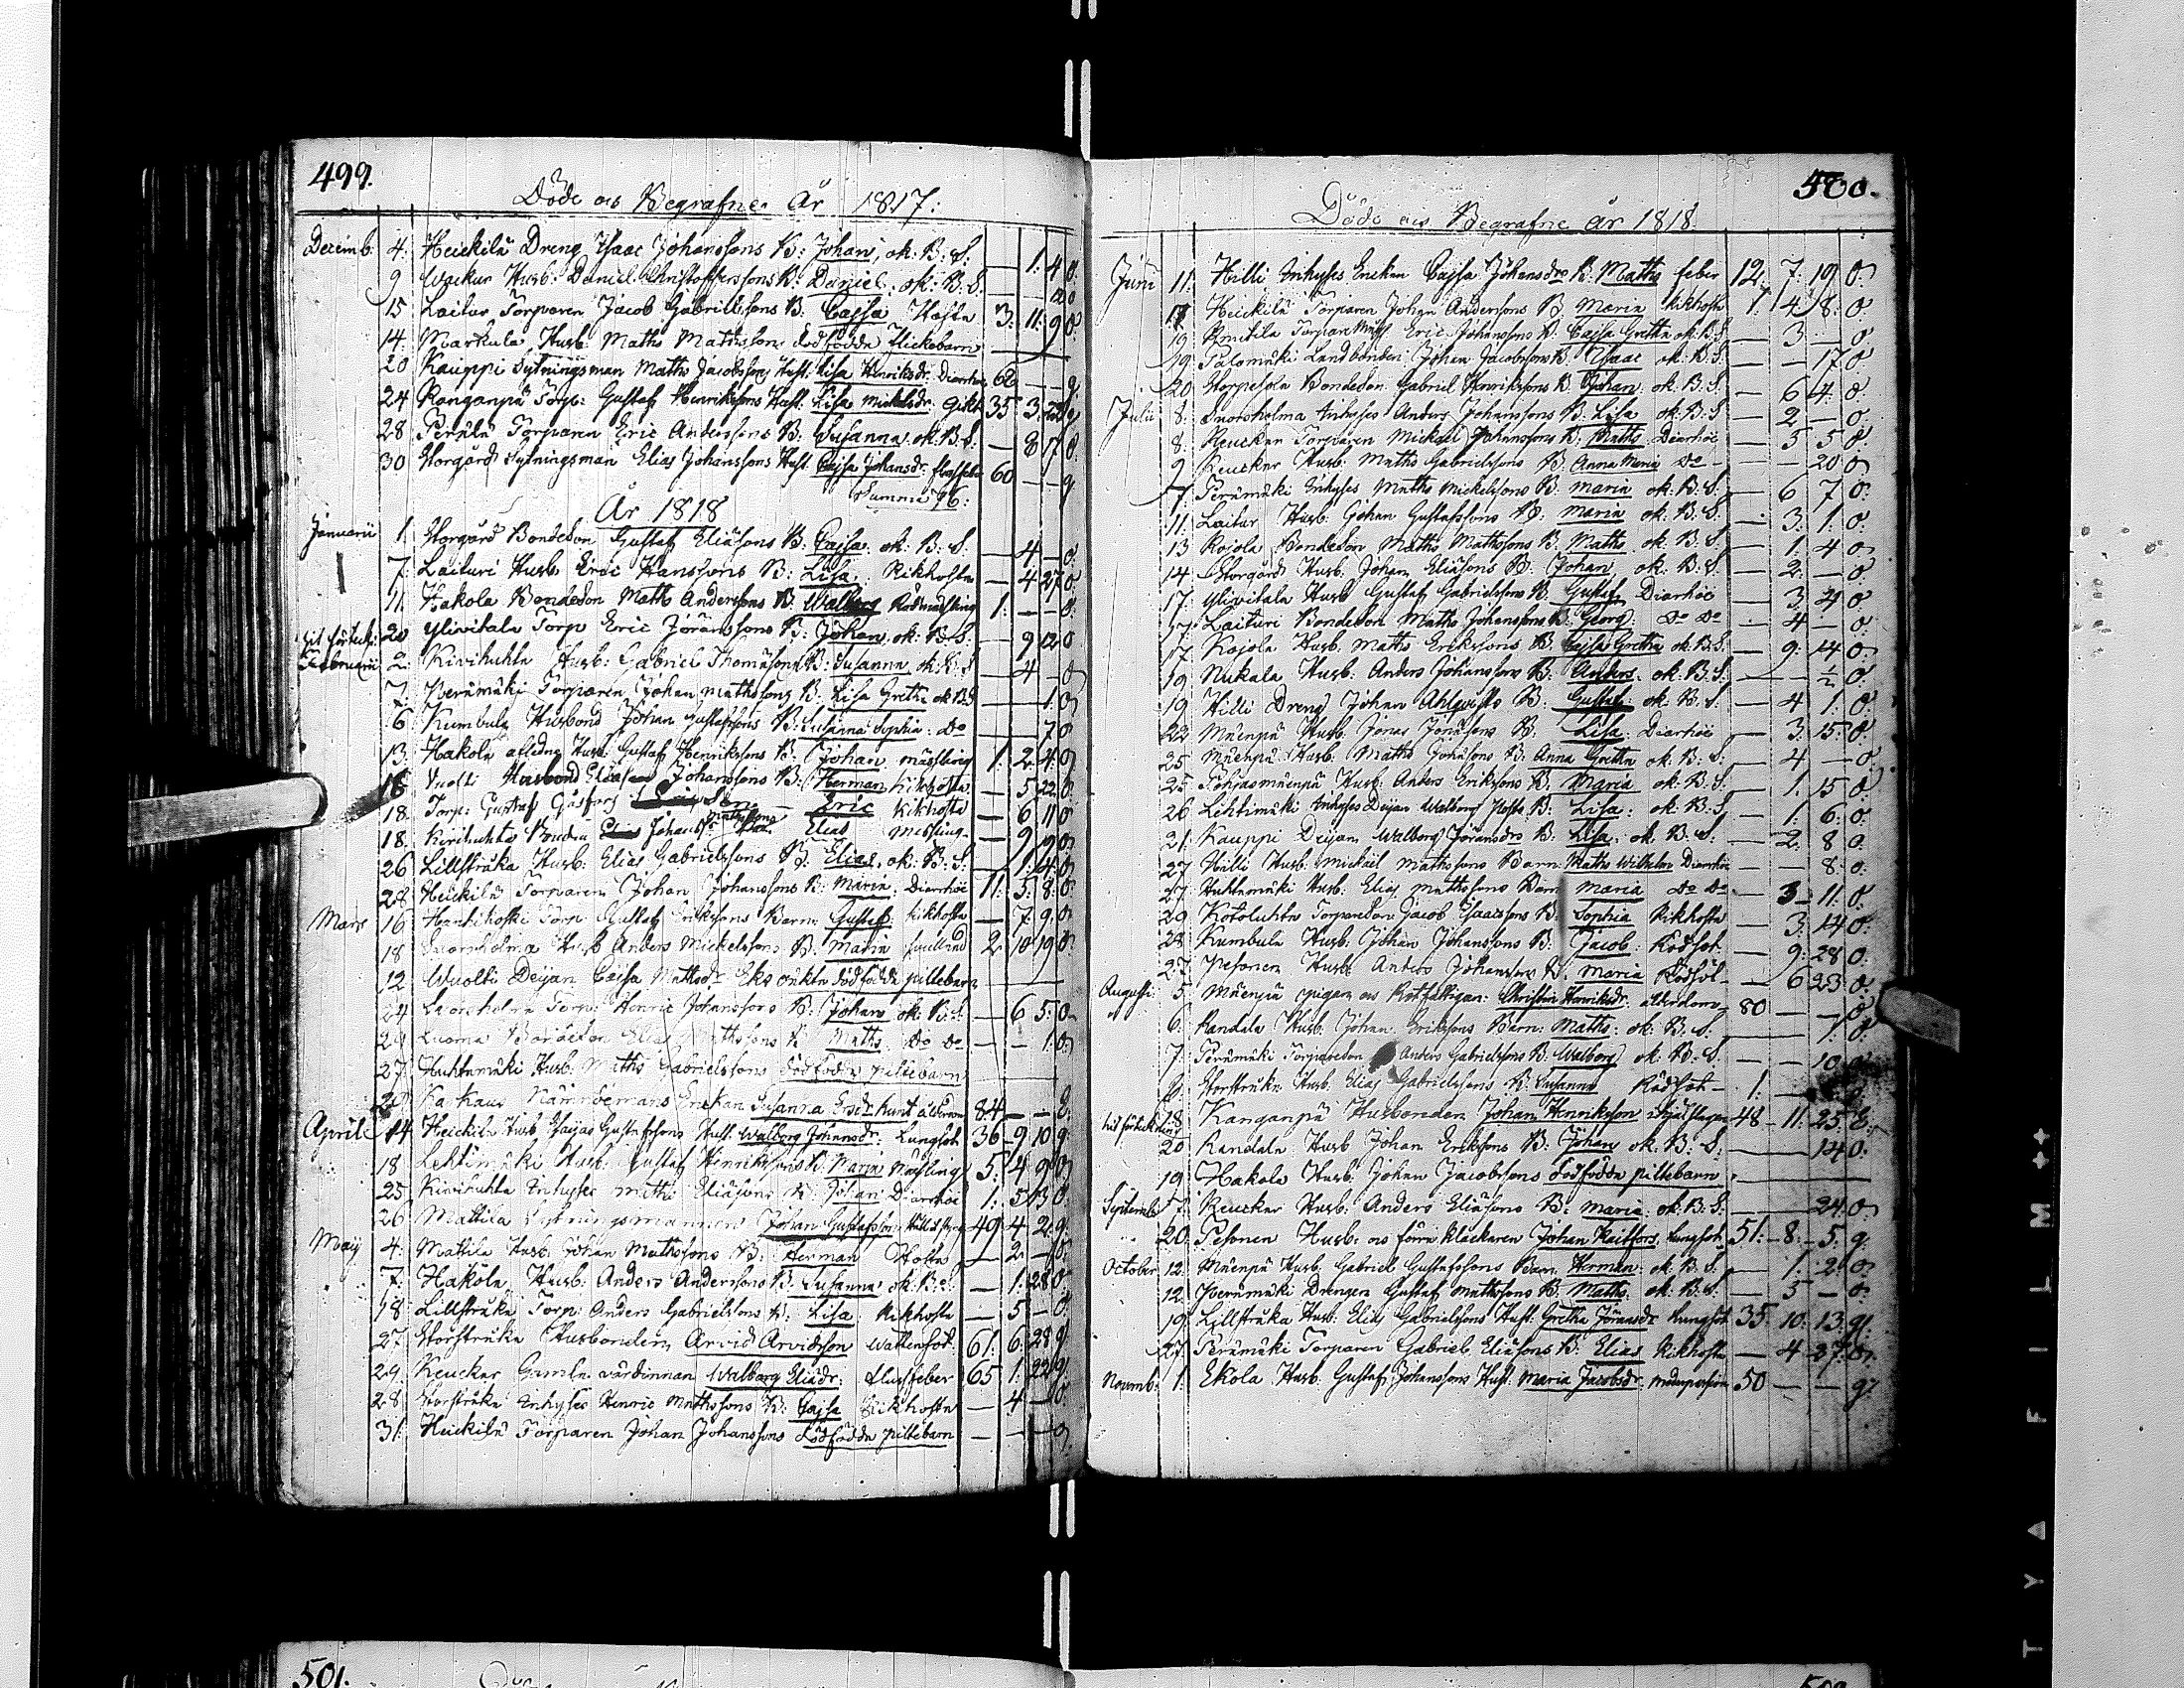 499.
Döde och Begrafne År 1817:
Decemb. 4. Heickilä Dreng Isaac Johanssons B: Johan, ok: B: S. — 1: 4 0:
9 Wackur Husb: Daniel Christofferssons B: Daniel. ok: B: S. — — 20
15 Laitur Torparen Jacob Gabrielssons B: Cajsa Hosta 3: 11: 9 0:
14. Markula Husb: Maths Mathssons dödfödda flickebarn — —
20 Kauppi Sytningsman Maths Jacobssons Hust: Lisa Henriksdr. Diarrhoe 62 — — g
24 Kanganpä Torp: Gustaf Henrikssons Hust. Lisa Mickelsdr. Gikt 35 3: g
28 Perälä Torparen Eric Anderssons B: Susanna. ok: B: S. — 8 17 0.
30 Storgård Sytningsman Elias Johanssons Hust. Cajsa Johansdr. 60 — — g
Summa 96:
År 1818
Januarii 1. Storgård Bondeson Gustaf Eliæsons B: Cajsa. ok: B: S. — 4 — 0
7: Laituri Husb: Eric Hanssons B: Lisa. Kikhosta — 4 27 0
11. Hakola Bondeson Maths Anderssons B. Walborg Rödmässling 1: — — 0.
20 Ylivitala Torp Eric Jöranssons B: Johan, ok: B: S. — 9 12 0
Februarii 2: Kivihuhta Husb: Gabriel Thomæsons B: Susanna ok: B: S — 4 — 0
7. Perämäki Torparen Johan Mathssons B: Lisa Greta ok B: S — — 1. 0
6 Kumbula Husbond Johan Gustafssons B: Susanna Sophia: Do — — 7 0
13. Hakola afledne Husb: Gustaf Henrikssons B: Johan mässling 1. 2 4 0
18 Vuolti Husbond Elias Johanssons B: Herman kikhosta — 5 22 0.
18. Torp: Gustaf — Eric Kikhosta — 6 11 0
18. Kivihuhta Johanss Elias Mässling — 9 9 0
26 Lillstråka Husb: Elias Gabrielssons B: Elias. ok: B: S. — 1: 4 0
28 Heickilä Torparen Johan Johanssons B: Maria. Diarrhoe 11 5: 8: 0
Mars 16 Torp. Gustaf Erikssons Barn: Gustaf. kikhosta — 7 9. 0
18 Husb Anders Mickelssons B: Maria 2 10 19 0.
12 Wuolti Deijan Cajsa Mathsdr. oäkta dödfödda pillebarn
24 Torp: Henric Johanssons B: Johan ok: B: S. — 6 5: 0
24 Luoma Elias Mathssons B Maths. Do Do — — 1. 0.
27 Huhtamäki Husb: Maths Gabrielssons dödfödda pillebarn
28 Karhaus Nämndemans Enckan Susanna Ersdr 84 — — 8.
Aprill 14 Heickilä Husb Esaias Gustafssons Hust. Walborg Johansdr: Lungsot 36 9 10 g.
18 Lehtimäki Husb: Gustaf Henrikssons B: Maria Mässling 5: 4 9 0
25 Kivihuhta Inhyses Maths Eliæsons B: Johan Diarrhoe 1: 5 13 0.
26 Mattila Sytningsmannen Johan Gustafsson 49 4 2. g.
May 4: Mattila Husb: Johan Mathssons B: Herman Hosta — 2 — 0.
7. Hakola Husb: Anders Anderssons B: Susanna. ok: B: S. — 1: 28 0.
18 Lillstråka Torp: Anders Gabrielssons B: Lisa. Kikhosta — 5 — 0.
27. Storstråka Husbonden Arvid Arvidsson Wattensot. 61: 6: 28 g.
29. Keucker Gamla värdinnan Walborg Eliædr: flussfeber 65 1. 22 g.
28: Storstråka Inhyses Henric Mathssons B: Cajsa Kikhosta — 4 — 0.
31. Heickilä Torparen Johan Johanssons dödfödda pillebarn — — — 0
500.
Döde och Begrafne år 1818.
Junii 11. Hilli Inhyses Enckan Cajsa Johansdr B: Maths feber 12. 7: 19 0
Heickilä Torparen Johan Anderssons B. Maria kikhosta 1. 4 8. 0.
19 Torpar Eric Johanssons B. Cajsa Gretha ok: B: S. — 3 — 0.
19. Palomäki Landbonden Johan Jacobssons B: Isaac ok: B: S. — — 17 0.
20. Storpesola Bondeson Gabriel Henrikssons B: Johan. ok: B: S. — 6 4. 0.
Julii 8: Snorsholma Inhyses Anders Johanssons B: Lisa ok: B: S — 2 — 0.
8. Keucker Torparen Mickael Johanssons B: Maths Diarrhoe — 5 5 0.
9 Keucker Husb: Maths Gabrielssons B. Anna Maria Do — — — 20 0
7. Perämäki Inhyses Maths Mickelssons B: Maria ok: B: S: — 6 7 0.
11. Laitur Husb: Johan Gustafssons B: Maria ok: B: S. — 3. 1. 0.
13 Kojola Bondeson Maths Mathssons B. Maths ok: B: S. — 1: 4 0
14 Storgård Husb: Johan Eliæsons B: Johan ok: B: S — 2: — 0.
17: Ylivitala Husb Gustaf Gabrielssons B. Gustaf Diarrhoe — 3. 4 0.
17. Laituri Bondeson Maths Johanssons B: Georg: Do Do — 4 — 0.
17 Kojola Husb: Maths Erikssons B. Cajsa Gretha ok: B: S. — 9: 14 0.
19 Nukala Husb: Anders Johanssons B: Anders. ok: B: S: — — ½ 0.
19 Hilli Dreng Johan Ahlqvists B. Gustaf. ok: B: S. — 4 1. 0.
22 Mäenpä Husb. Jonas Jonæsons B. Lisa: Diarrhoe — 3. 15. 0.
25 Mäenpä Husb: Maths Jonæsons B: Anna Gretha ok: B: S: — 4 — 0.
25 Pohjasmäenpä Husb. Anders Erikssons B. Maria ok: B: S. — 1. 15 0.
26 Lehtimäki Inhyses Deijan Walborg B: Lisa: ok: B: S — 1: 6: 0.
21. Kauppi Deijan Walborg Jöransdr B: Lisa. ok: B: S. — 2. 8 0.
27 Hilli Husb: Mickael Mathssons Barn Maths Wilhelm Diarrhoe — — 8. 0.
27. Huhtamäki Husb: Elias Mathssons Barn Maria Do Do — 3 11. 0.
29. Kotoluhta Torpareson Jacob Isaacssons B. Sophia kikhosta — 3: 14 0.
28 Kumbula Husb: Johan Johanssons B: Jacob. Rödsot — 9: 28 0.
27 Pesonen Husb: Anders Johanssons B. Maria Rödsot — 6 23. 0.
Augusti 5 Mäenpä pigan och Rotfattigan: Christin Henriksdr. ålderdom 80 — — 0
6. Randala Husb: Johan Erikssons Barn: Maths: ok: B. S. — — 1. 0.
7. Perämäki Torpareson Anders Gabrielssons B. Walborg ok: B: S. — — 10 0
9 Storstråka Husb: Elias Gabrielssons B: Susanna Rödsot — 1. —
18. Kanganpä Husbonden Johan Henriksson ihjälslagen 48 11: 25.
20 Randala Husb Johan Erikssons B: Johan ok: B: S: — — 14 0.
19 Hakola Husb: Johan Jacobssons dödfödda pillebarn
Septemb. 7 Keucker Husb: Anders Eliæsons B: Maria: ok: B: S. — — 24. 0
20. Pesonen Husb: och förra klåckaren Johan Kaitfors. Lungsot 51: 8: 5. g.
October 12. Mäenpä Husb: Gabriel Gustafssons Barn Herman: ok: B: S. — 1: 2. 0
12. Perämäki Drengen Gustaf Mathssons B. Maths. ok: B: S. — 5 — 0.
19. Lillstråka Husb: Elias Gabrielssons Hust: Gretha Jöransdr. Lungsot 35. 10: 13. g.
27. Perämäki Torparen Gabriel Eliæsons B. Elias Kikhosta — 4 27. 0.
Novemb: 1. Ekola Husb: Gustaf Johanssons Hust: Maria Jacobsdr. 50 — — g.
501.
TYA FILM